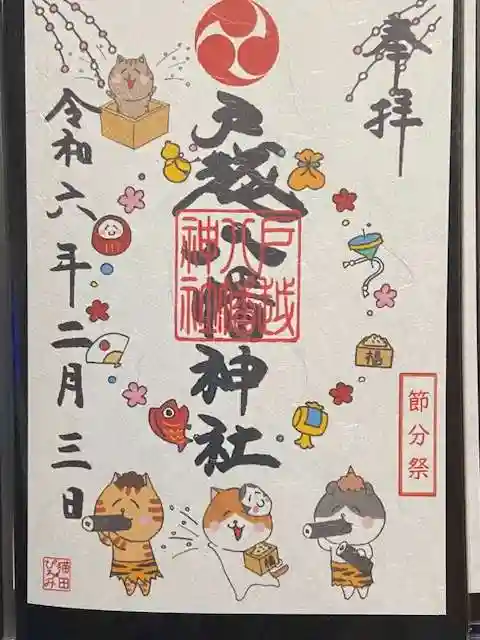 奉拝
戸越八幡神社
戸越
八幡
神社
福
節分祭
令和六年二月三日